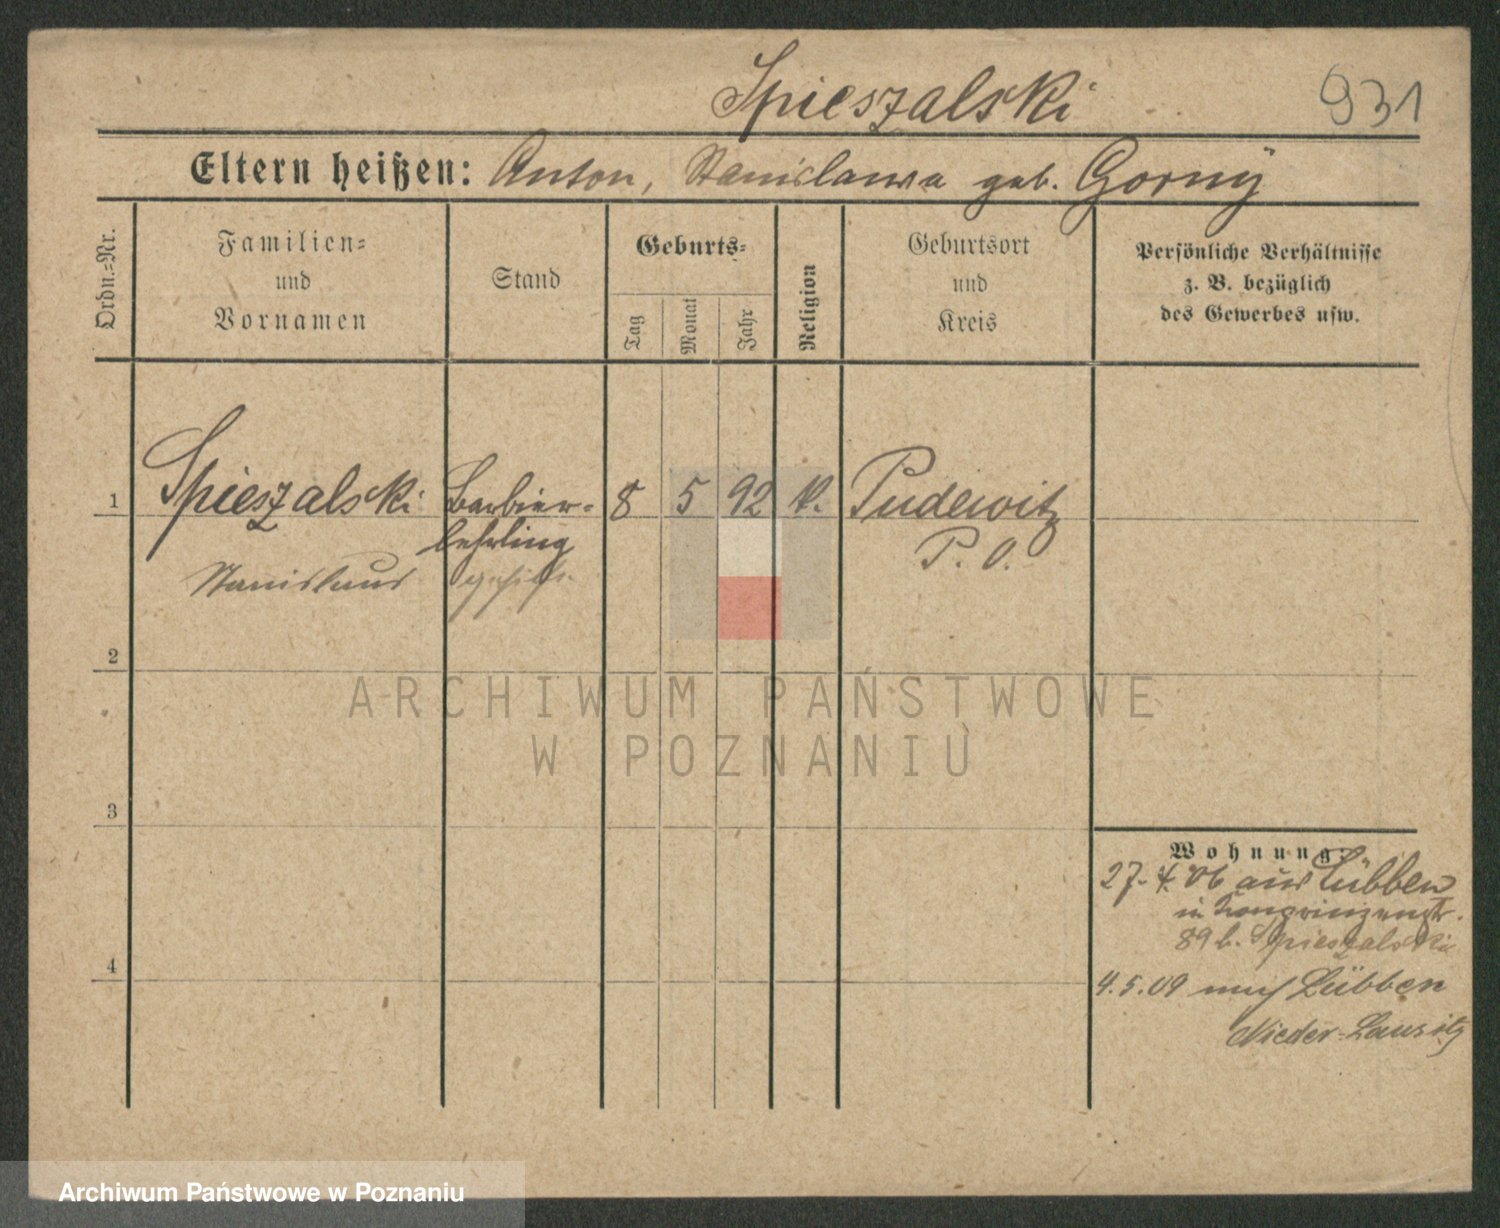 Spieszalski 931
Eltern heißen: Anton, Stanislawa geb. Gorny
Ordn.-Nr.
Familien-
und
Vornamen
Stand
Geburts-
Tag
Monat
Jahr
Religion
Geburtsort
und
Kreis
Persönliche Verhältnisse
z. B. bezüglich
des Gewerbes usw.
1 Spieszalski Barbier- 8 5 92 k. Pudewitz
lehrling P. O.
Stanislaus gehilfe
2
ARCHIWUM PAŃSTWOWE
W POZNANIU
3
Wohnung:
27.4.06 aus Lübben
in Kronprinzenstr.
89 b. Spieszalski
4
4.5.09 nach Lübben
Nieder-Lausitz
Archiwum Państwowe w Poznaniu